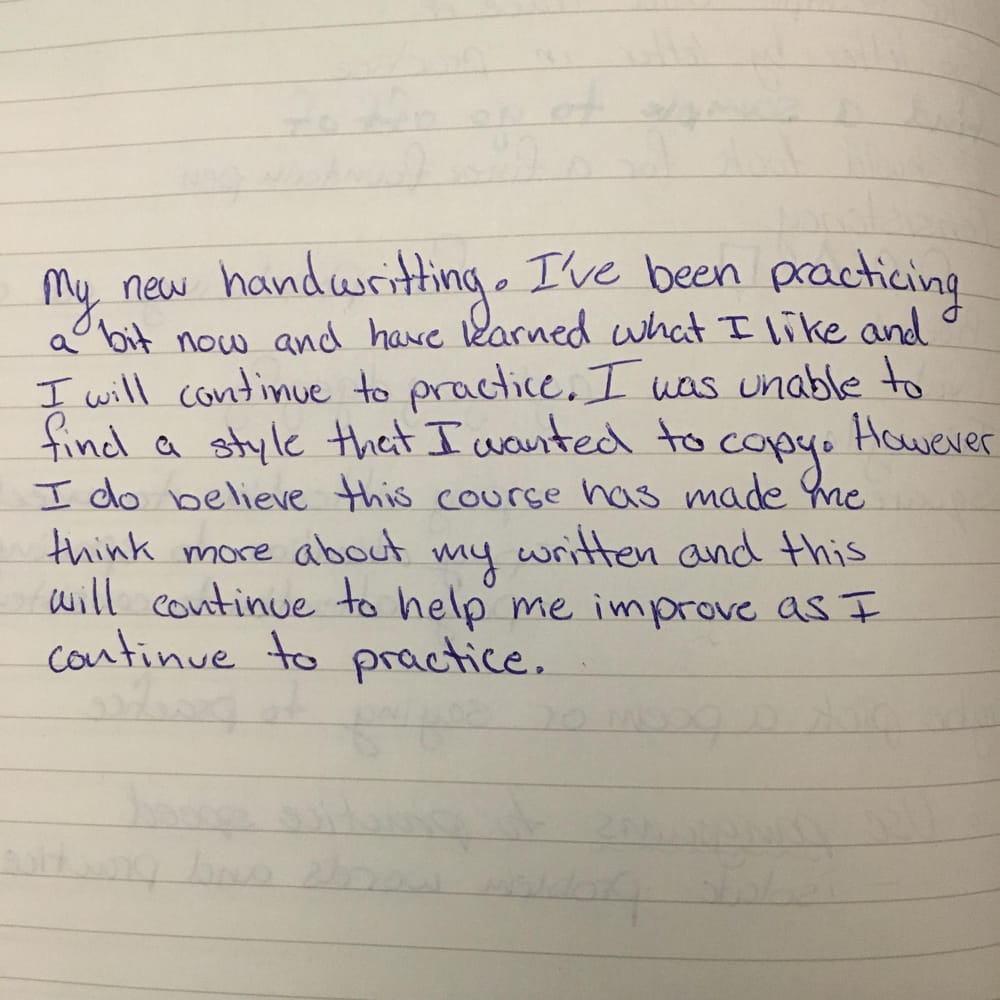 My new handwritting. I've been practicing
a bit now and have learned what I like and
I will continue to practice. I was unable to
find a style that I wanted to copy. However
I do believe this course has made me
think more about my written and this
will continue to help me improve as I
continue to practice.